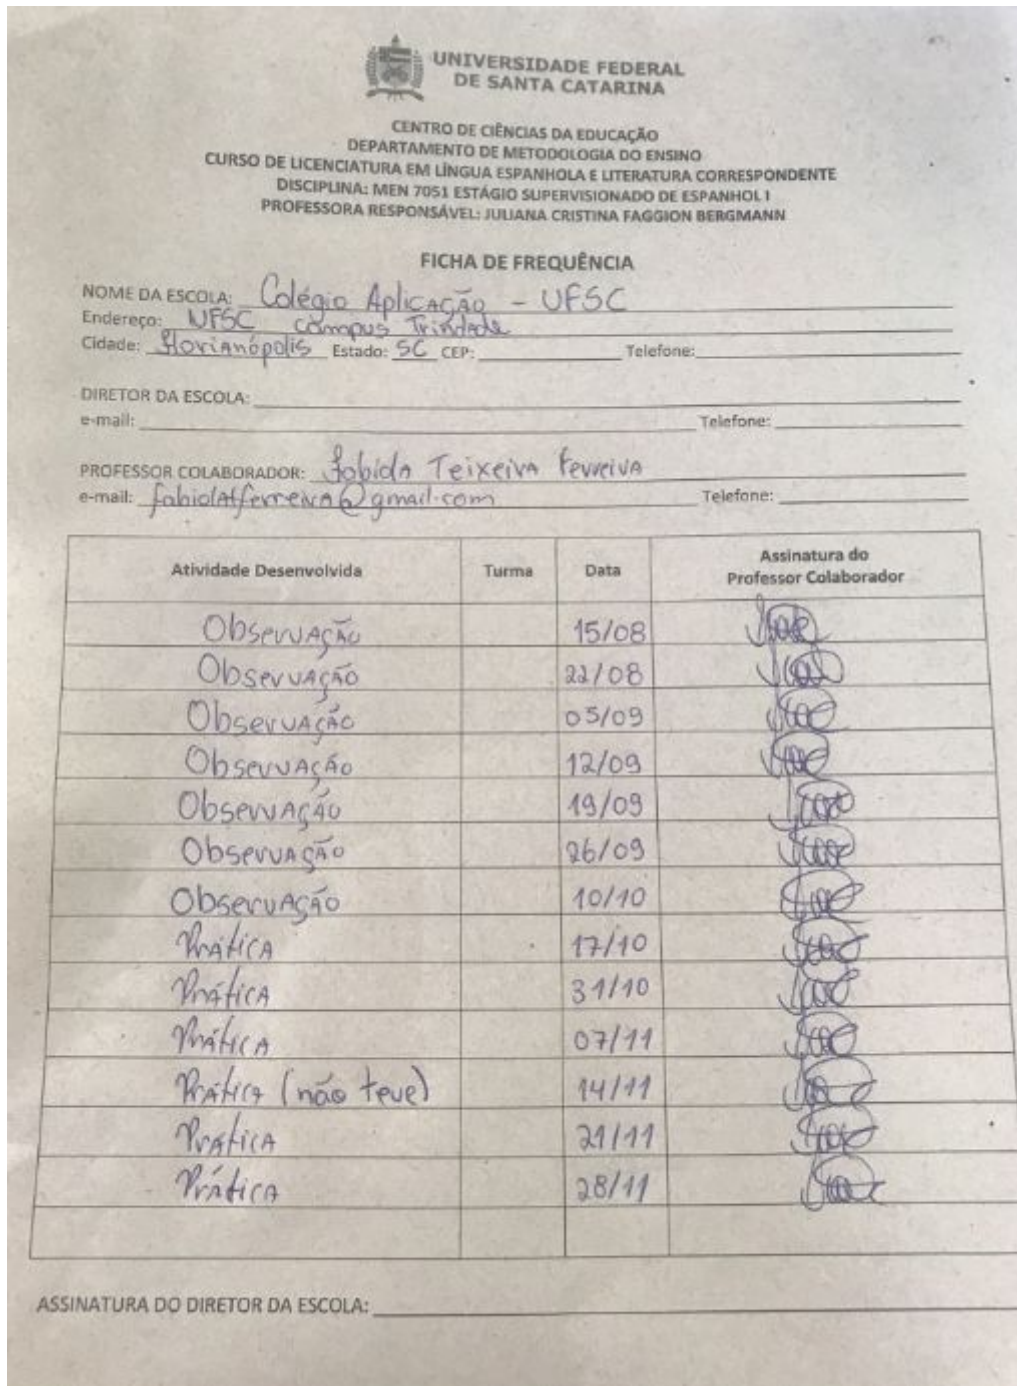 UNIVERSIDADE FEDERAL
DE SANTA CATARINA
CENTRO DE CIÊNCIAS DA EDUCAÇÃO
DEPARTAMENTO DE METODOLOGIA DO ENSINO
CURSO DE LICENCIATURA EM LÍNGUA ESPANHOLA E LITERATURA CORRESPONDENTE
DISCIPLINA: MEN 7051 ESTÁGIO SUPERVISIONADO DE ESPANHOL I
PROFESSORA RESPONSÁVEL: JULIANA CRISTINA FAGGION BERGMANN
FICHA DE FREQUÊNCIA
NOME DA ESCOLA: Colégio Aplicação - UFSC
Endereço: UFSC campus Trindade
Cidade: Florianópolis Estado: SC CEP: Telefone:
DIRETOR DA ESCOLA:
e-mail: Telefone:
PROFESSOR COLABORADOR: Teixeira Ferreira
e-mail: fabiolatferreira@gmail.com Telefone:
Atividade Desenvolvida Turma Data Assinatura do Professor Colaborador
Observação 15/08
Observação 22/08
Observação 05/09
Observação 12/09
Observação 19/09
Observação 26/09
Observação 10/10
Prática 17/10
Prática 31/10
Prática 07/11
Prática (não teve) 14/11
Prática 21/11
Prática 28/11
ASSINATURA DO DIRETOR DA ESCOLA: